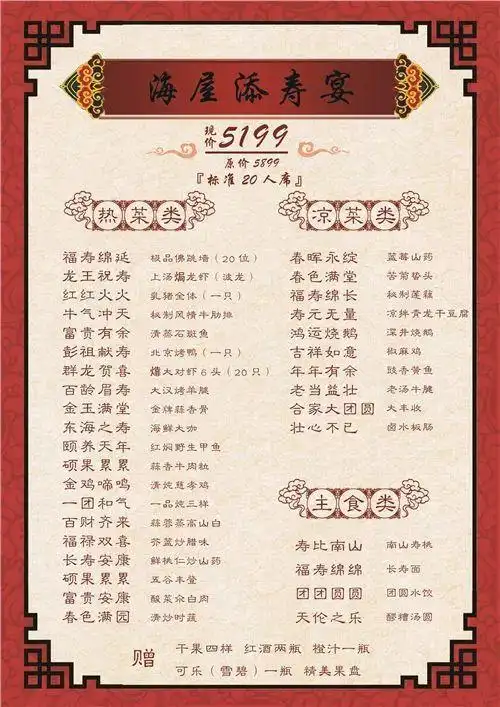 海屋添寿宴
现价5199
原价 5899
『标准 20 人席』
热菜类
福寿绵延 极品佛跳墙（20 位）
龙王祝寿 上汤焗龙虾（波龙）
红红火火 乳猪全体（一只）
牛气冲天 秘制风情牛肋排
富贵有余 清蒸石斑鱼
彭祖献寿 北京烤鸭（一只）
群龙贺喜 大对虾 6 头（20 只）
百龄眉寿 大汉烤羊腿
金玉满堂 金牌蒜香骨
东海之寿 海鲜大咖
颐养天年 红焖野生甲鱼
硕果累累 蒜香牛肉粒
金鸡啼鸣 清炖慈孝鸡
一团和气 一品炖三样
百财齐来 蒜蓉蒸高山白
福禄双喜 芥蓝炒腊味
长寿安康 鲜桃仁炒山药
硕果累累 五谷丰登
富贵安康 酸菜汆白肉
春色满园 清炒时蔬
凉菜类
春晖永绽 蓝莓山药
春色满堂 苦菊蛰头
福寿绵长 秘制莲藕
寿元无量 凉拌青龙干豆腐
鸿运烧鹅 深井烧鹅
吉祥如意 椒麻鸡
年年有余 豉香黄鱼
老当益壮 老汤牛腱
合家大团圆 大丰收
壮心不已 卤水板肠
主食类
寿比南山 南山寿桃
福寿绵绵 长寿面
团团圆圆 团圆水饺
天伦之乐 醪糟汤圆
赠 干果四样 红酒两瓶 橙汁一瓶
可乐（雪碧）一瓶 精美果盘